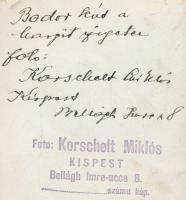 Bodor kút a
margit szigeten
foto:
Korschelt Miklós
Kispest
Bellágh Imre u 8
Foto: Korschelt Miklós
KISPEST
Bellágh Imre-ucca 8.
számu ház.